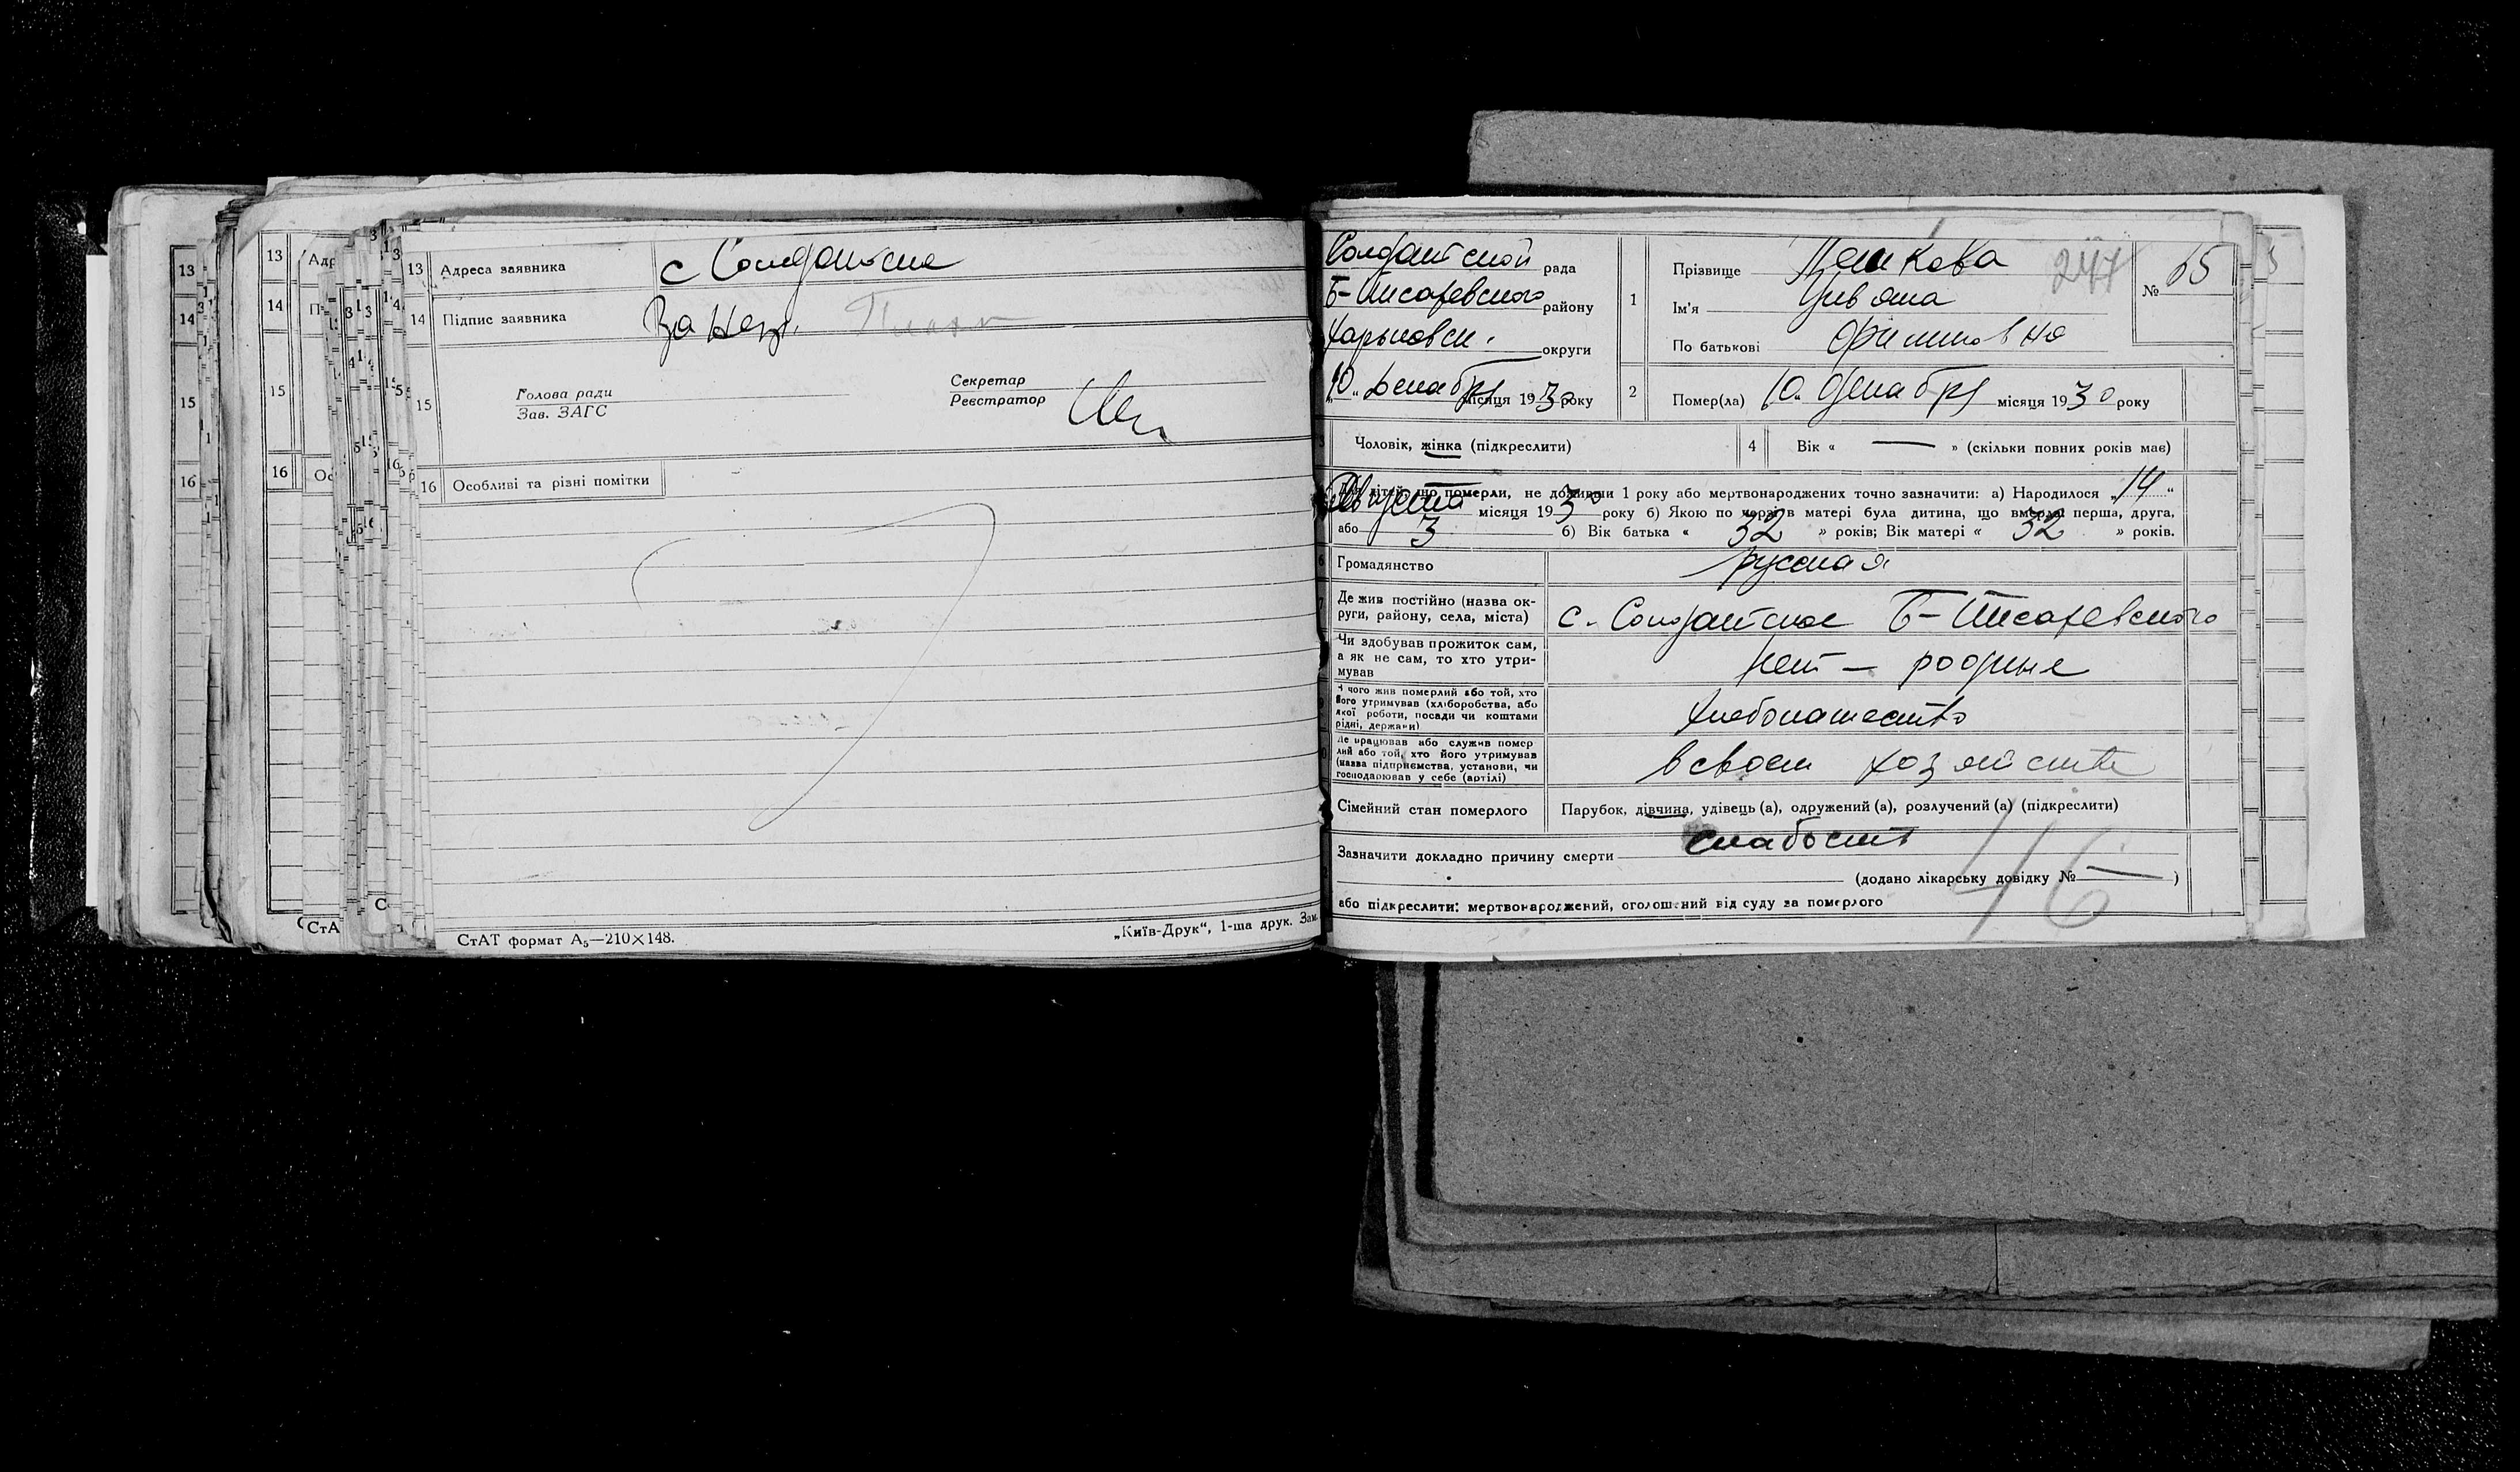 13 Адреса заявника с Солдатское
14 Підпис заявника За нег.
15 Голова ради
Зав. ЗАГС
Секретар
Реєстратор
16 Особливі та різні помітки
СтАТ формат А₅—210×148.
„Київ-Друк“, 1-ша друк. Зам.
Солдатской рада
Б-Писаревского району
Харьковск. округи
„10“ Декабря місяця 1930 року
1 Прізвище Пешкова 247
Ім'я
По батькові Филиповна
№ 65
2 Помер(ла) 10 Декабря місяця 1930 року
3 Чоловік, жінка (підкреслити)
4 Вік « — » (скільки повних років має)
дітей, що померли, не доживши 1 року або мертвонароджених точно зазначити: а) Народилося „14“
Августа місяця 1930 року б) Якою по черзі в матері була дитина, що вмерла: перша, друга,
або 3 б) Вік батька « 32 » років; Вік матері « 32 » років.
6 Громадянство русская
7 Де жив постійно (назва ок-
руги, району, села, міста) с. Солдатское Б-Писаревского
Чи здобував прожиток сам,
а як не сам, то хто утри-
мував нет — родные
З чого жив померлий або той, хто
його утримував (хліборобства, або
якої роботи, посади чи коштами
рідні, держави) хлебопашество
Де працював або служив помер
лий або той, хто його утримував
(назва підприємства, установи, чи
господарював у себе (артілі) в своем хозяйстве
Сімейний стан померлого Парубок, дівчина, удівець (а), одружений (а), розлучений (а) (підкреслити)
Зазначити докладно причину смерти слабость
(додано лікарську довідку № — )
або підкреслити: мертвонароджений, оголошений від суду за померлого